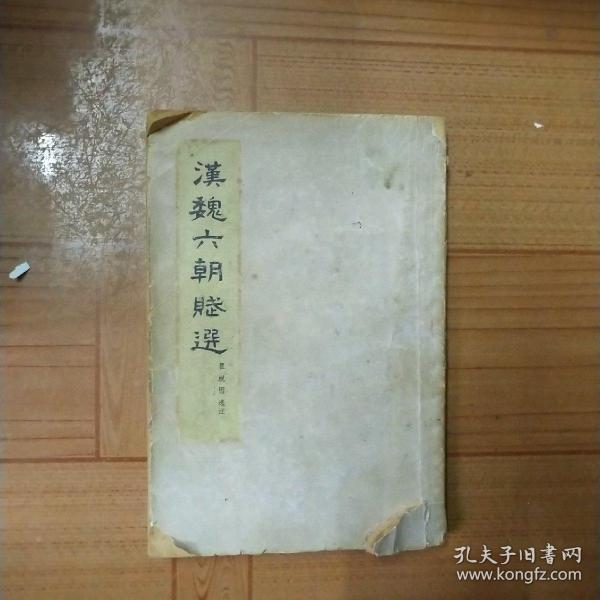 漢魏六朝賦選
瞿蜕園選注
孔夫子旧書网
www.kongfz.com